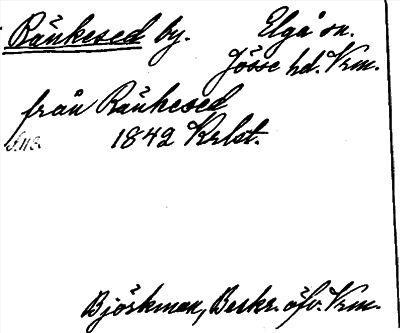 Ränkesed by. Elgå sn.
Jösse hd. Vrm.
från Ränkesed
1842 Krlst.
Björkman, Beskr. öfv. Vrm.